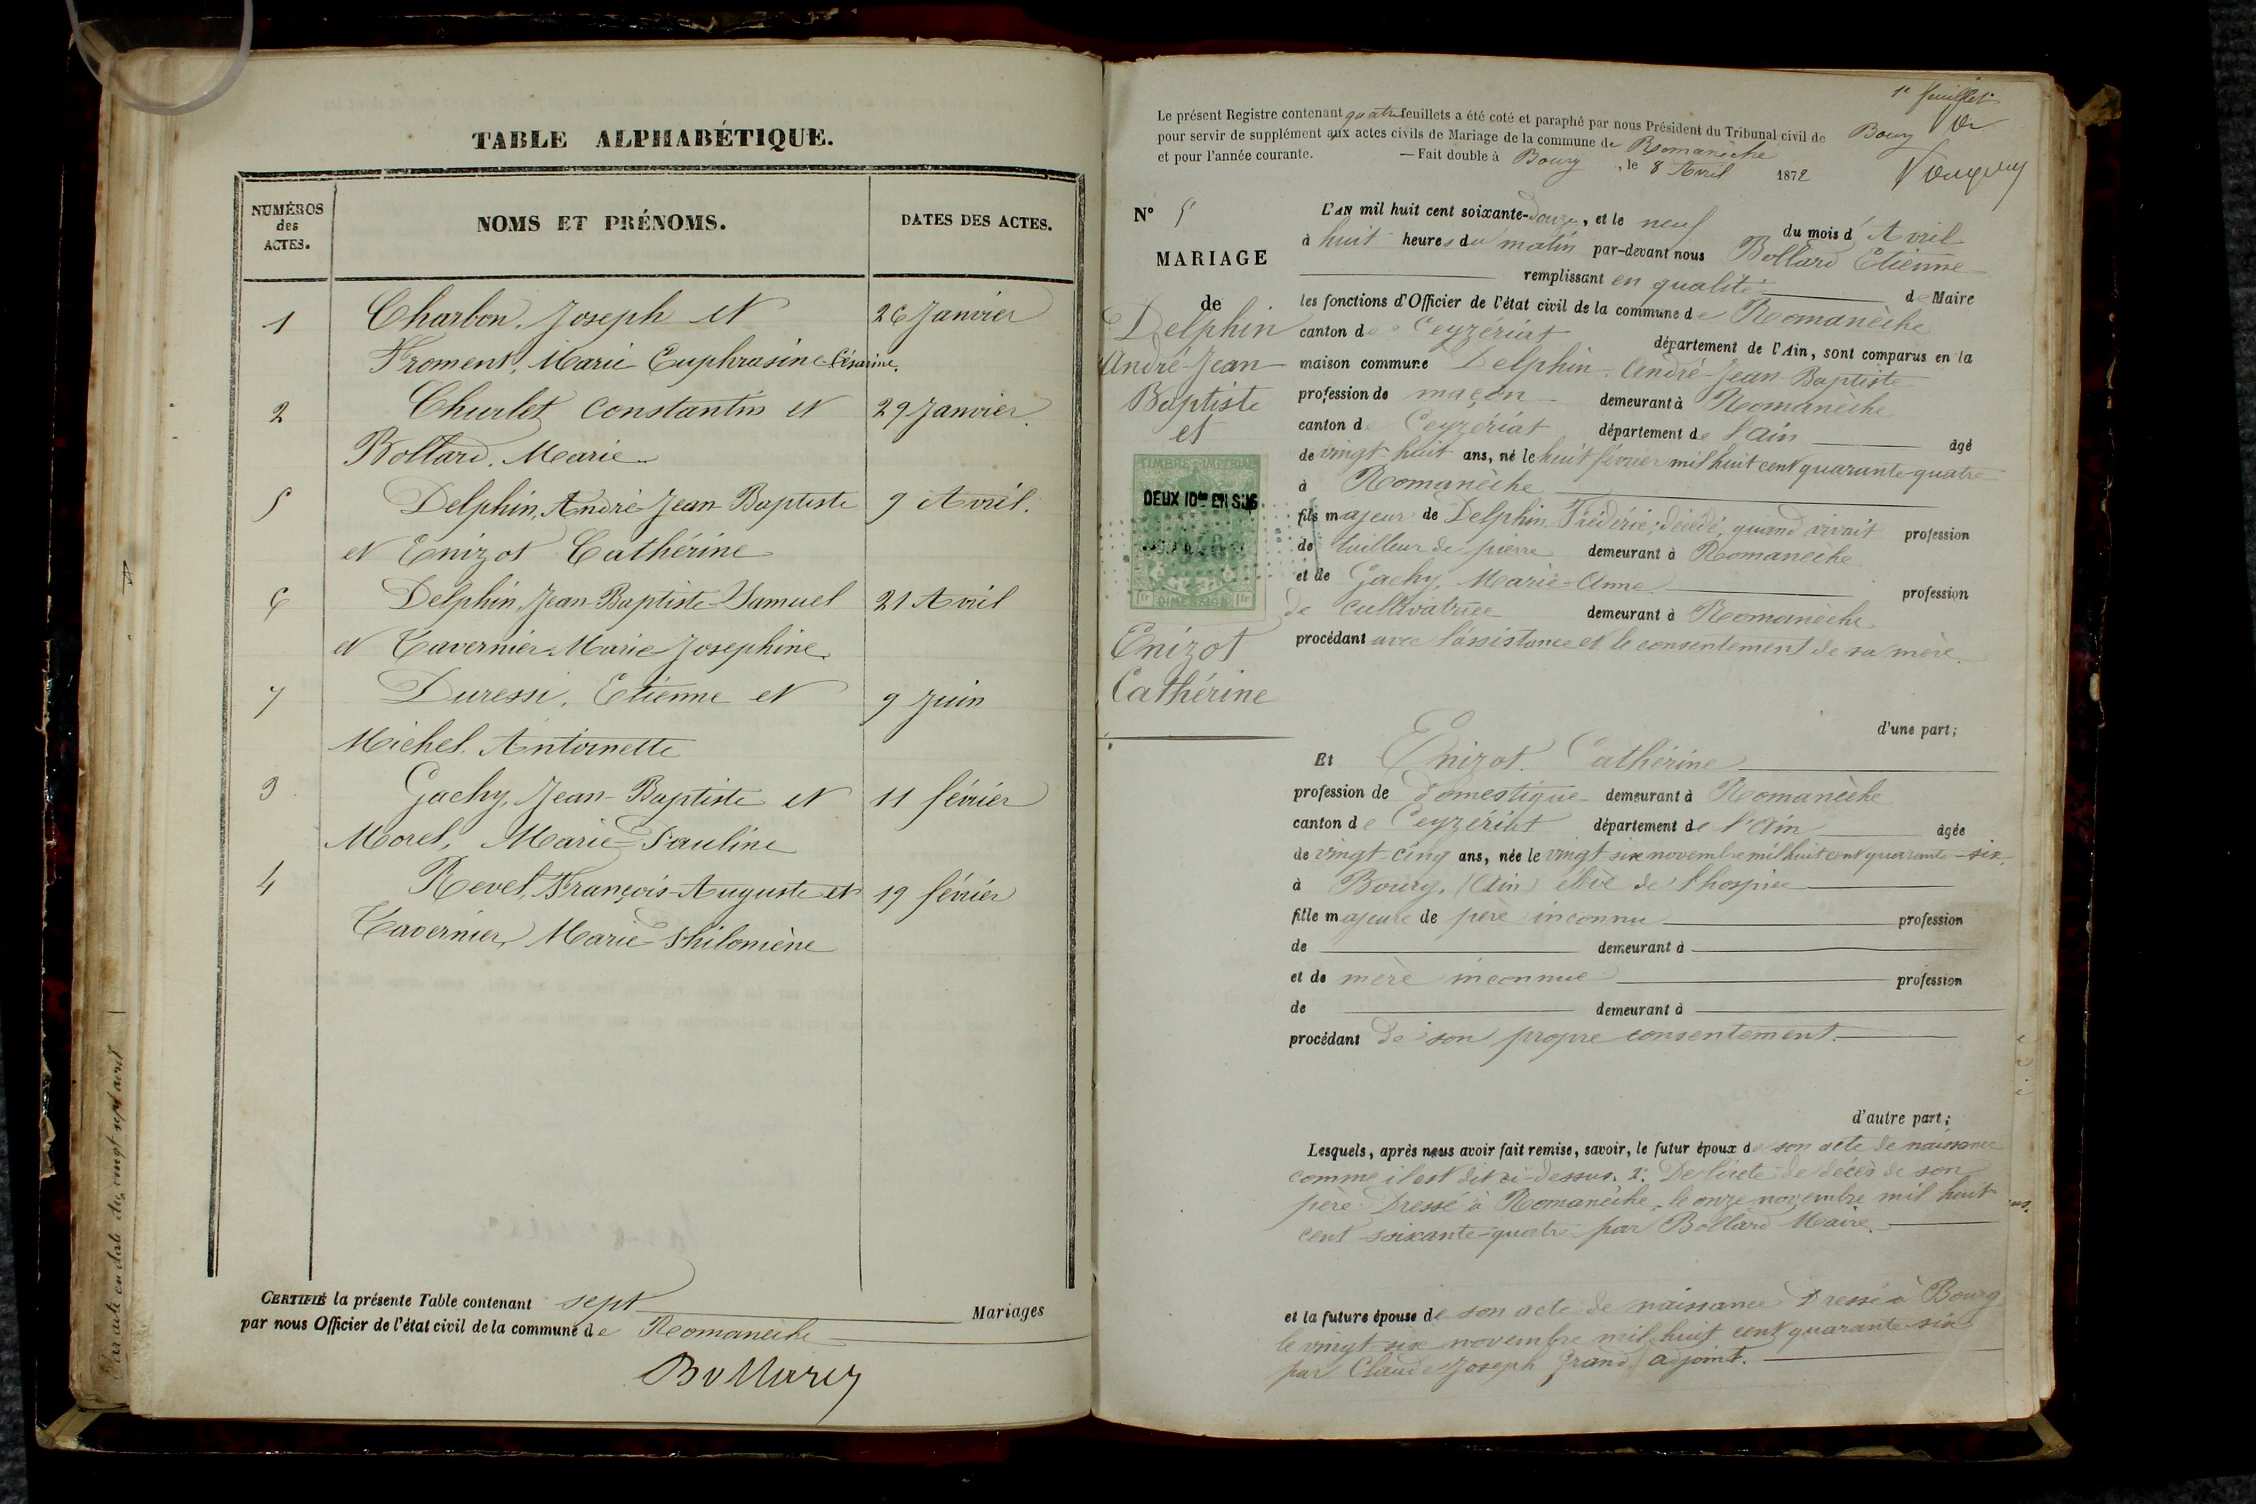 TABLE ALPHABÉTIQUE.
NUMÉROS des ACTES.
NOMS ET PRÉNOMS.
DATES DES ACTES.
1 Charbon, Joseph et 26 Janvier
Froment, Marie Euphrasine-Césarine.
2 Churlet Constantin et 29 Janvier.
Bollard, Marie
5 Delphin, André Jean Baptiste 9 Avril.
et Enizot Cathérine
6 Delphin, Jean-Baptiste-Samuel 21 Avril
et Tavernier Marie Josephine
7 Duressi, Etienne et 9 Juin
Michel, Antoinette
3 Gachy, Jean-Baptiste et 11 février
Morel, Marie-Pauline
4 Revel, François-Auguste et 19 février
Tavernier, Marie-Philomène
CERTIFIÉ la présente Table contenant sept Mariages
par nous Officier de l'état civil de la commune de Romanèche
Bollard
Par acte en date du vingt sept avril
1er feuillet
Le présent Registre contenant quatre feuillets a été coté et paraphé par nous Président du Tribunal civil de Bourg
pour servir de supplément aux actes civils de Mariage de la commune de Romanèche
et pour l'année courante. — Fait double à Bourg, le 8 Avril 1872
N° 5
MARIAGE
de
Delphin
André-Jean
Baptiste
et
TIMBRE IMPÉRIAL
DEUX 10es EN SUS
1fr DIMENSION 1fr
Enizot
Cathérine
L'AN mil huit cent soixante-douze, et le neuf du mois d'Avril
à huit heures du matin par-devant nous Bollard Etienne
remplissant en qualité de Maire
les fonctions d'Officier de l'état civil de la commune de Romanèche
canton de Ceyzériat département de l'Ain, sont comparus en la
maison commune Delphin, André-Jean-Baptiste
profession de maçon demeurant à Romanèche
canton de Ceyzériat département de l'Ain âgé
de vingt-huit ans, né le huit février mil huit cent quarante-quatre
à Romanèche
fils majeur de Delphin Frédéric, décédé, quand vivait profession
de tailleur de pierre demeurant à Romanèche
et de Gachy, Marie-Anne profession
de cultivatrice demeurant à Romanèche
procédant avec l'assistance et le consentement de sa mère.
d'une part;
Et Enizot Cathérine
profession de domestique demeurant à Romanèche
canton de Ceyzériat département de l'Ain âgée
de vingt-cinq ans, née le vingt-six novembre mil huit cent quarante-six
à Bourg, (Ain) élève de l'hospice
fille majeure de père inconnu profession
de demeurant à
et de mère inconnue profession
de demeurant à
procédant de son propre consentement.
d'autre part;
Lesquels, après nous avoir fait remise, savoir, le futur époux de son acte de naissance
comme il est dit ci-dessus. 2° De l'acte de décès de son
père Dressé à Romanèche, le onze novembre mil huit
cent soixante-quatre par Bollard Maire.
et la future épouse de son acte de naissance Dressé à Bourg
le vingt-six novembre mil huit cent quarante-six
par Claude Joseph Grand adjoint.